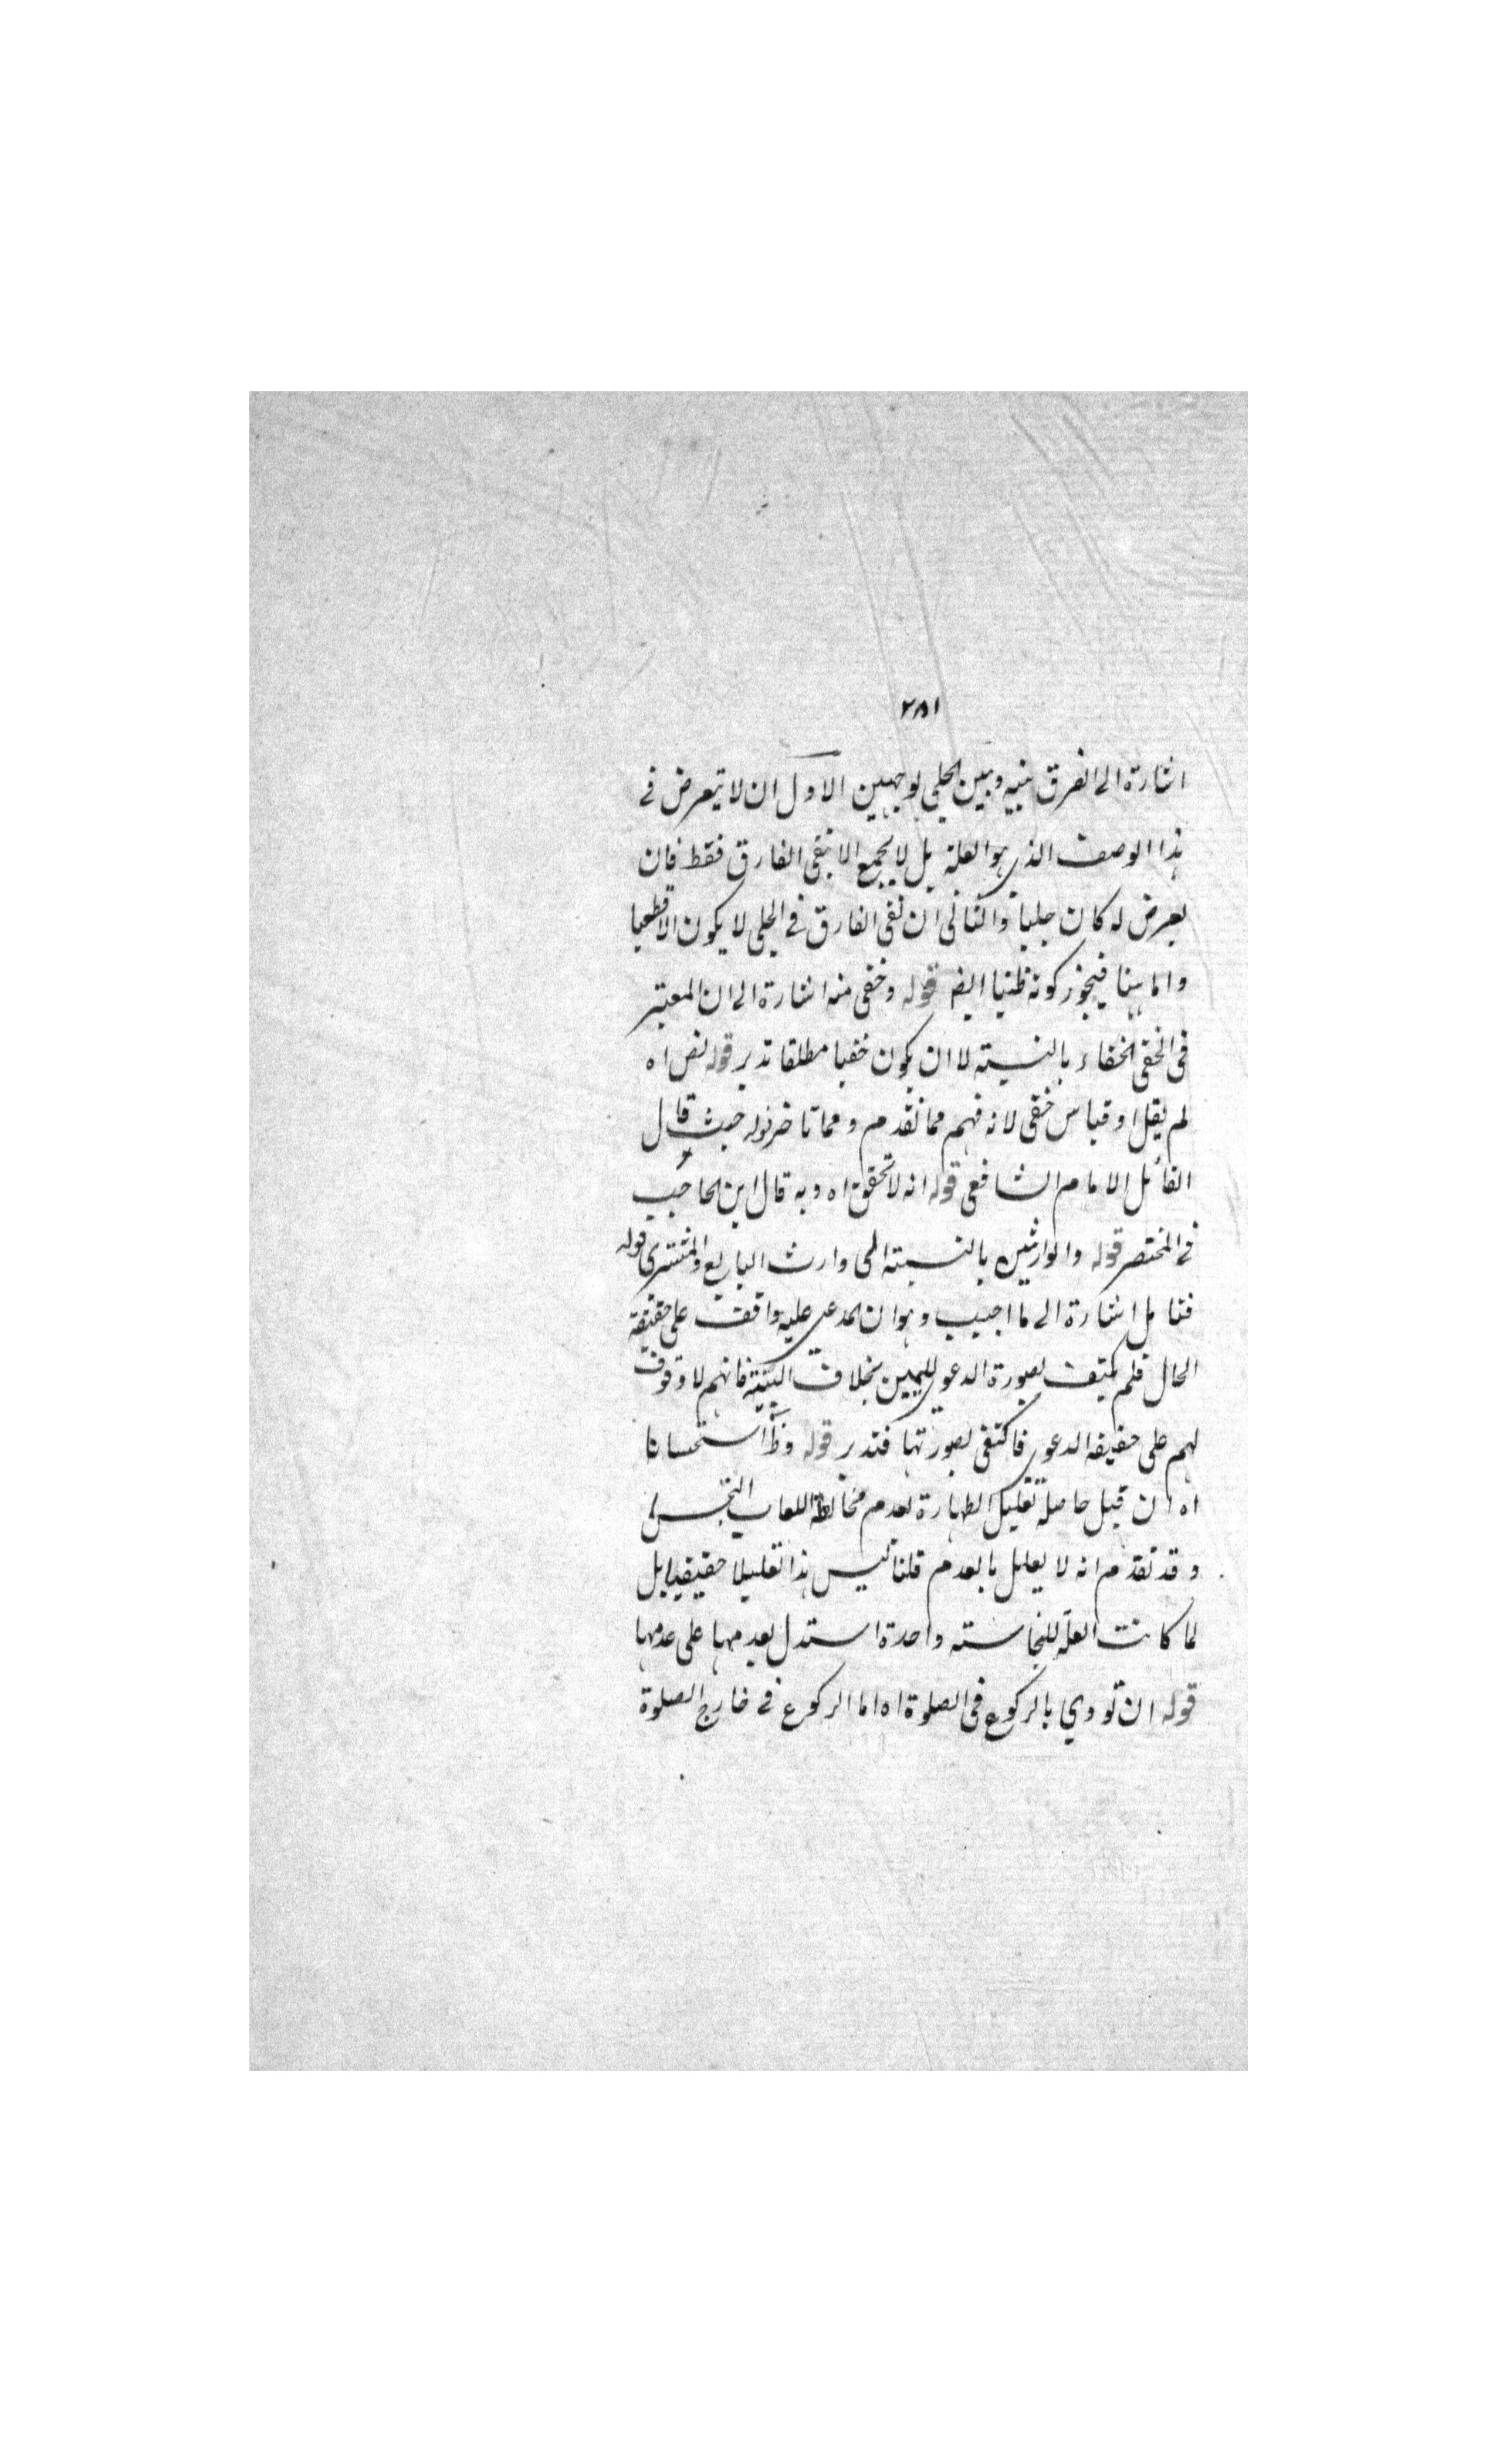 ٢٨١
اشارة الى الفرق بينه وبين الجلي بوجهين الاول ان لا يتعرض في
هذا الوصف الذي هو العلة بل لا يجمع الا بنفي الفارق فقط فان
تعرض له كان جليا والثاني ان نفي الفارق في الجلي لا يكون الا قطعيا
واما هنا فيجوز كونه ظنيا ايض قوله وخفي منه اشارة الى ان المعتبر
في الخفي الخفاء بالنسبة لا ان يكون خفيا مطلقا تدبر قوله نص اه
لم يقل او قياس خفي لانه فهم مما تقدم ومما تاخر قوله حيث قال
القائل الامام الشافعي قوله انه لا تحقق اه وبه قال ابن الحاجب
في المختصر قوله والوارثين بالنسبة الى وارث البايع والمشتري قوله
فتامل اشارة الى ما اجيب وهو ان المدعى عليه واقف على حقيقة
الحال فلم يكتف بصورة الدعوى لليمين بخلاف البينة فانهم لا وقوف
لهم على حقيقة الدعوى فاكتفى بصورتها فتدبر قوله استحسانا
اه ان قيل حاصله تعليل الطهارة بعدم مخالطة اللعاب النجس
وقد تقدم انه لا يعلل بالعدم قلنا ليس هذا تعليلا حقيقيا بل
لما كانت العلة للنجاسة واحدة استدل بعدمها على عدمها
قوله ان تودي بالركوع في الصلوة اه اما الركوع في خارج الصلوة